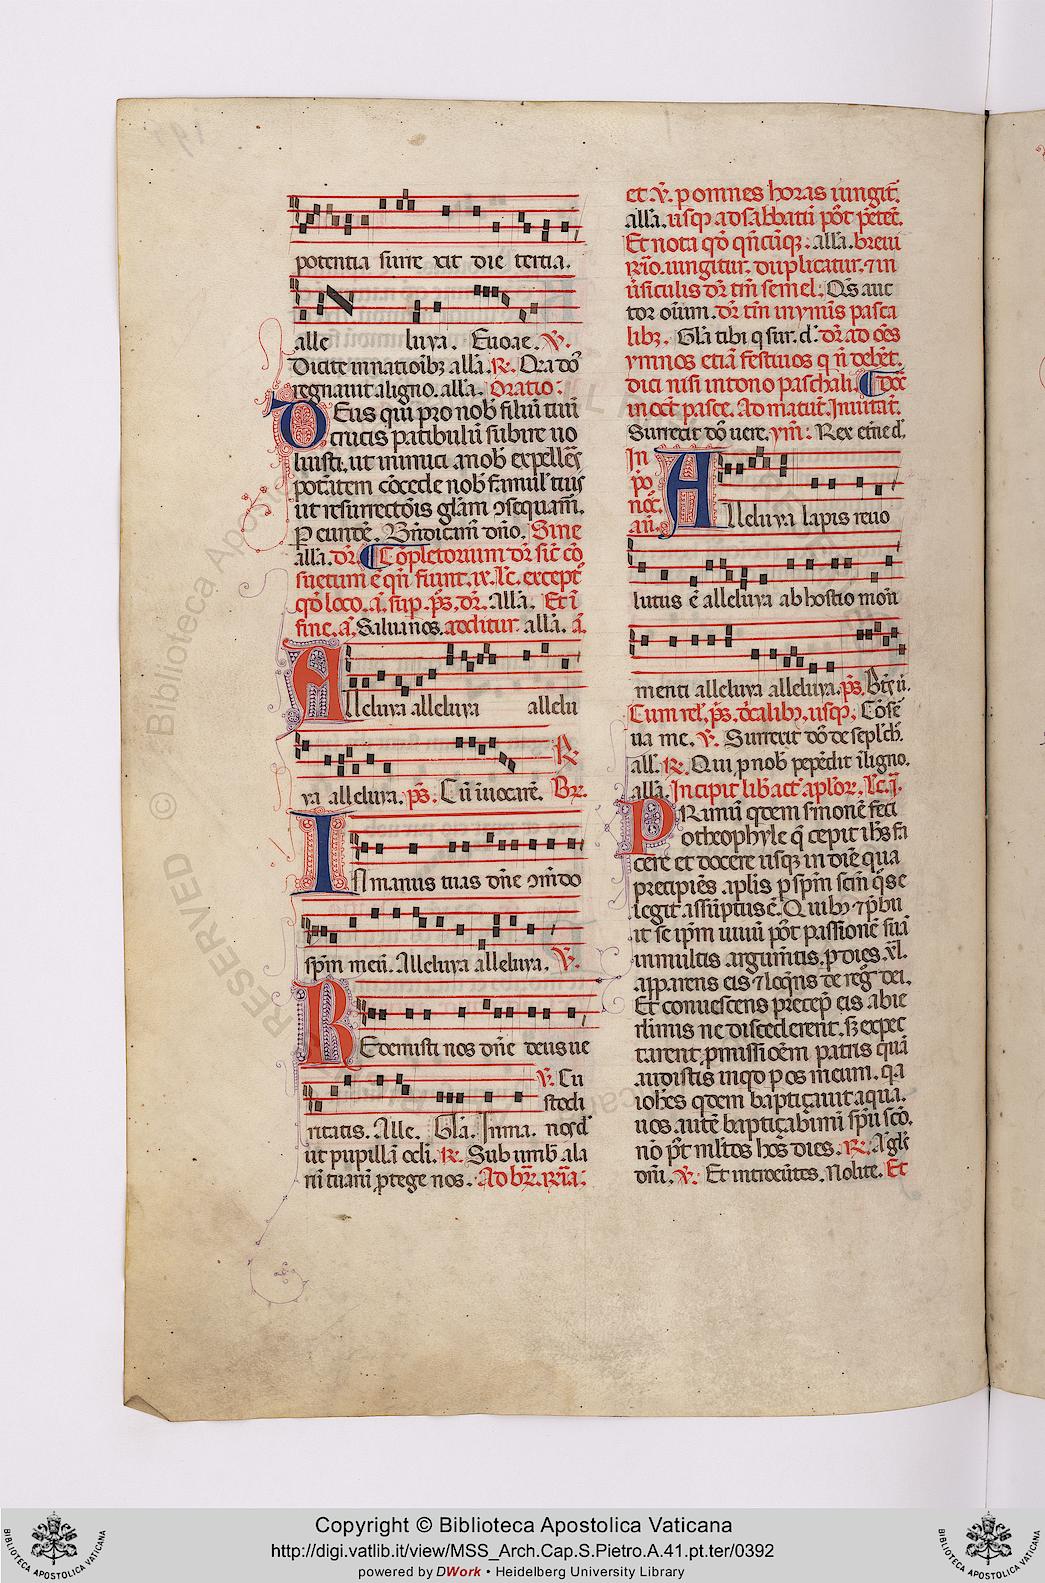 potentia surre xit die tertia.
alle luya. Euouae. V.
Dicite in nationibꝫ alla. R. Quia dñs
regnauit a ligno. alla. Oratio.
DEus qui pro nob filiū tuū
crucis patibulū subire uo
luisti, ut inimici a nob expelleres
potātem. cōcede nob famul tuis
ut resurrectōis glām ɔsequam̄.
P eundē. Bñdicam dño. Sine
alla. dr̄. Cōpletorium dr̄ sic̄ cō
suetum ē qñ fiunt. ix. lc̄. except̄
qd̄ loco. a. sup. ps. dr̄. Alla. Et ī
fine. a. Salua nos. additur alla. a.
Alleluya alleluya allelu
ya alleluya. ps. Cū īuocarē. Br̄.
IN manus tuas dñe ɔmdo
spm meū. Alleluya alleluya. V.
REdemisti nos dñe deus ue
V. Cu
stodi
ritatis. Alle. Glā. In ma. nos d
ut pupillā ocli. R. Sub umb ala
rū tuarū ꝓtege nos.
et. V. p omnes horas iungit̄.
alla. usqꝫ ad sabbatū
Et nota qd̄ qñcūqꝫ. alla. breui
r̄rio. iungitur. duplicatur. ⁊ in
ūsiculis dr̄ tm̄ semel. Qs auc
tor oīum. dr̄ tm̄ in ymnis pasca
libꝫ. Glā tibi q sur. d. dr̄ ad oēs
ymnos etiā festiuos q ñ debēt
dici nisi in tono paschali.
in oct̄ pasce. Ad matut̄. Inuitat̄.
Surrexit dñs uere. ym̄. Rex et̄ne d.
In
po
noc̄.
an.
Alleluya lapis reuo
lutus ē alleluya ab hostio monu
menti alleluya alleluya. ps. Bt̄s ū.
Cum rel. ps. usqꝫ. Cōser
ua me. V. Surrexit dñs de seplcͪ.
all. R. Qui p nob pepēdit ī ligno.
alla. Incipit lib act aplor. lc̄. j.
PRimū qdem smonē feci
o theophyle q cepit ihs fa
cere et docere usqꝫ in diē qua
precipiēs aplis p spm scm q̄s e
legit assūptus ē. Quibꝫ ⁊ p̄bu
it se ipm uiuū pōt passionē suā
in multis argum̄tis. p dies xl.
apparens eis ⁊ loq̄ns de reg̅ dei.
Et conuescens precep eis a hie
rlimis ne discederent. sꝫ expec
tarent ꝓmissiōem patris quā
audistis inqd p os meum. qa
iohes qdem baptiçauit aqua.
uos autē baptiçabimī spū scō.
nō pt mltos hos dies. R. Agle
dñi. V. Et introeūtes. Nolite. Et
Copyright © Biblioteca Apostolica Vaticana
http://digi.vatlib.it/view/MSS_Arch.Cap.S.Pietro.A.41.pt.ter/0392
powered by DWork • Heidelberg University Library